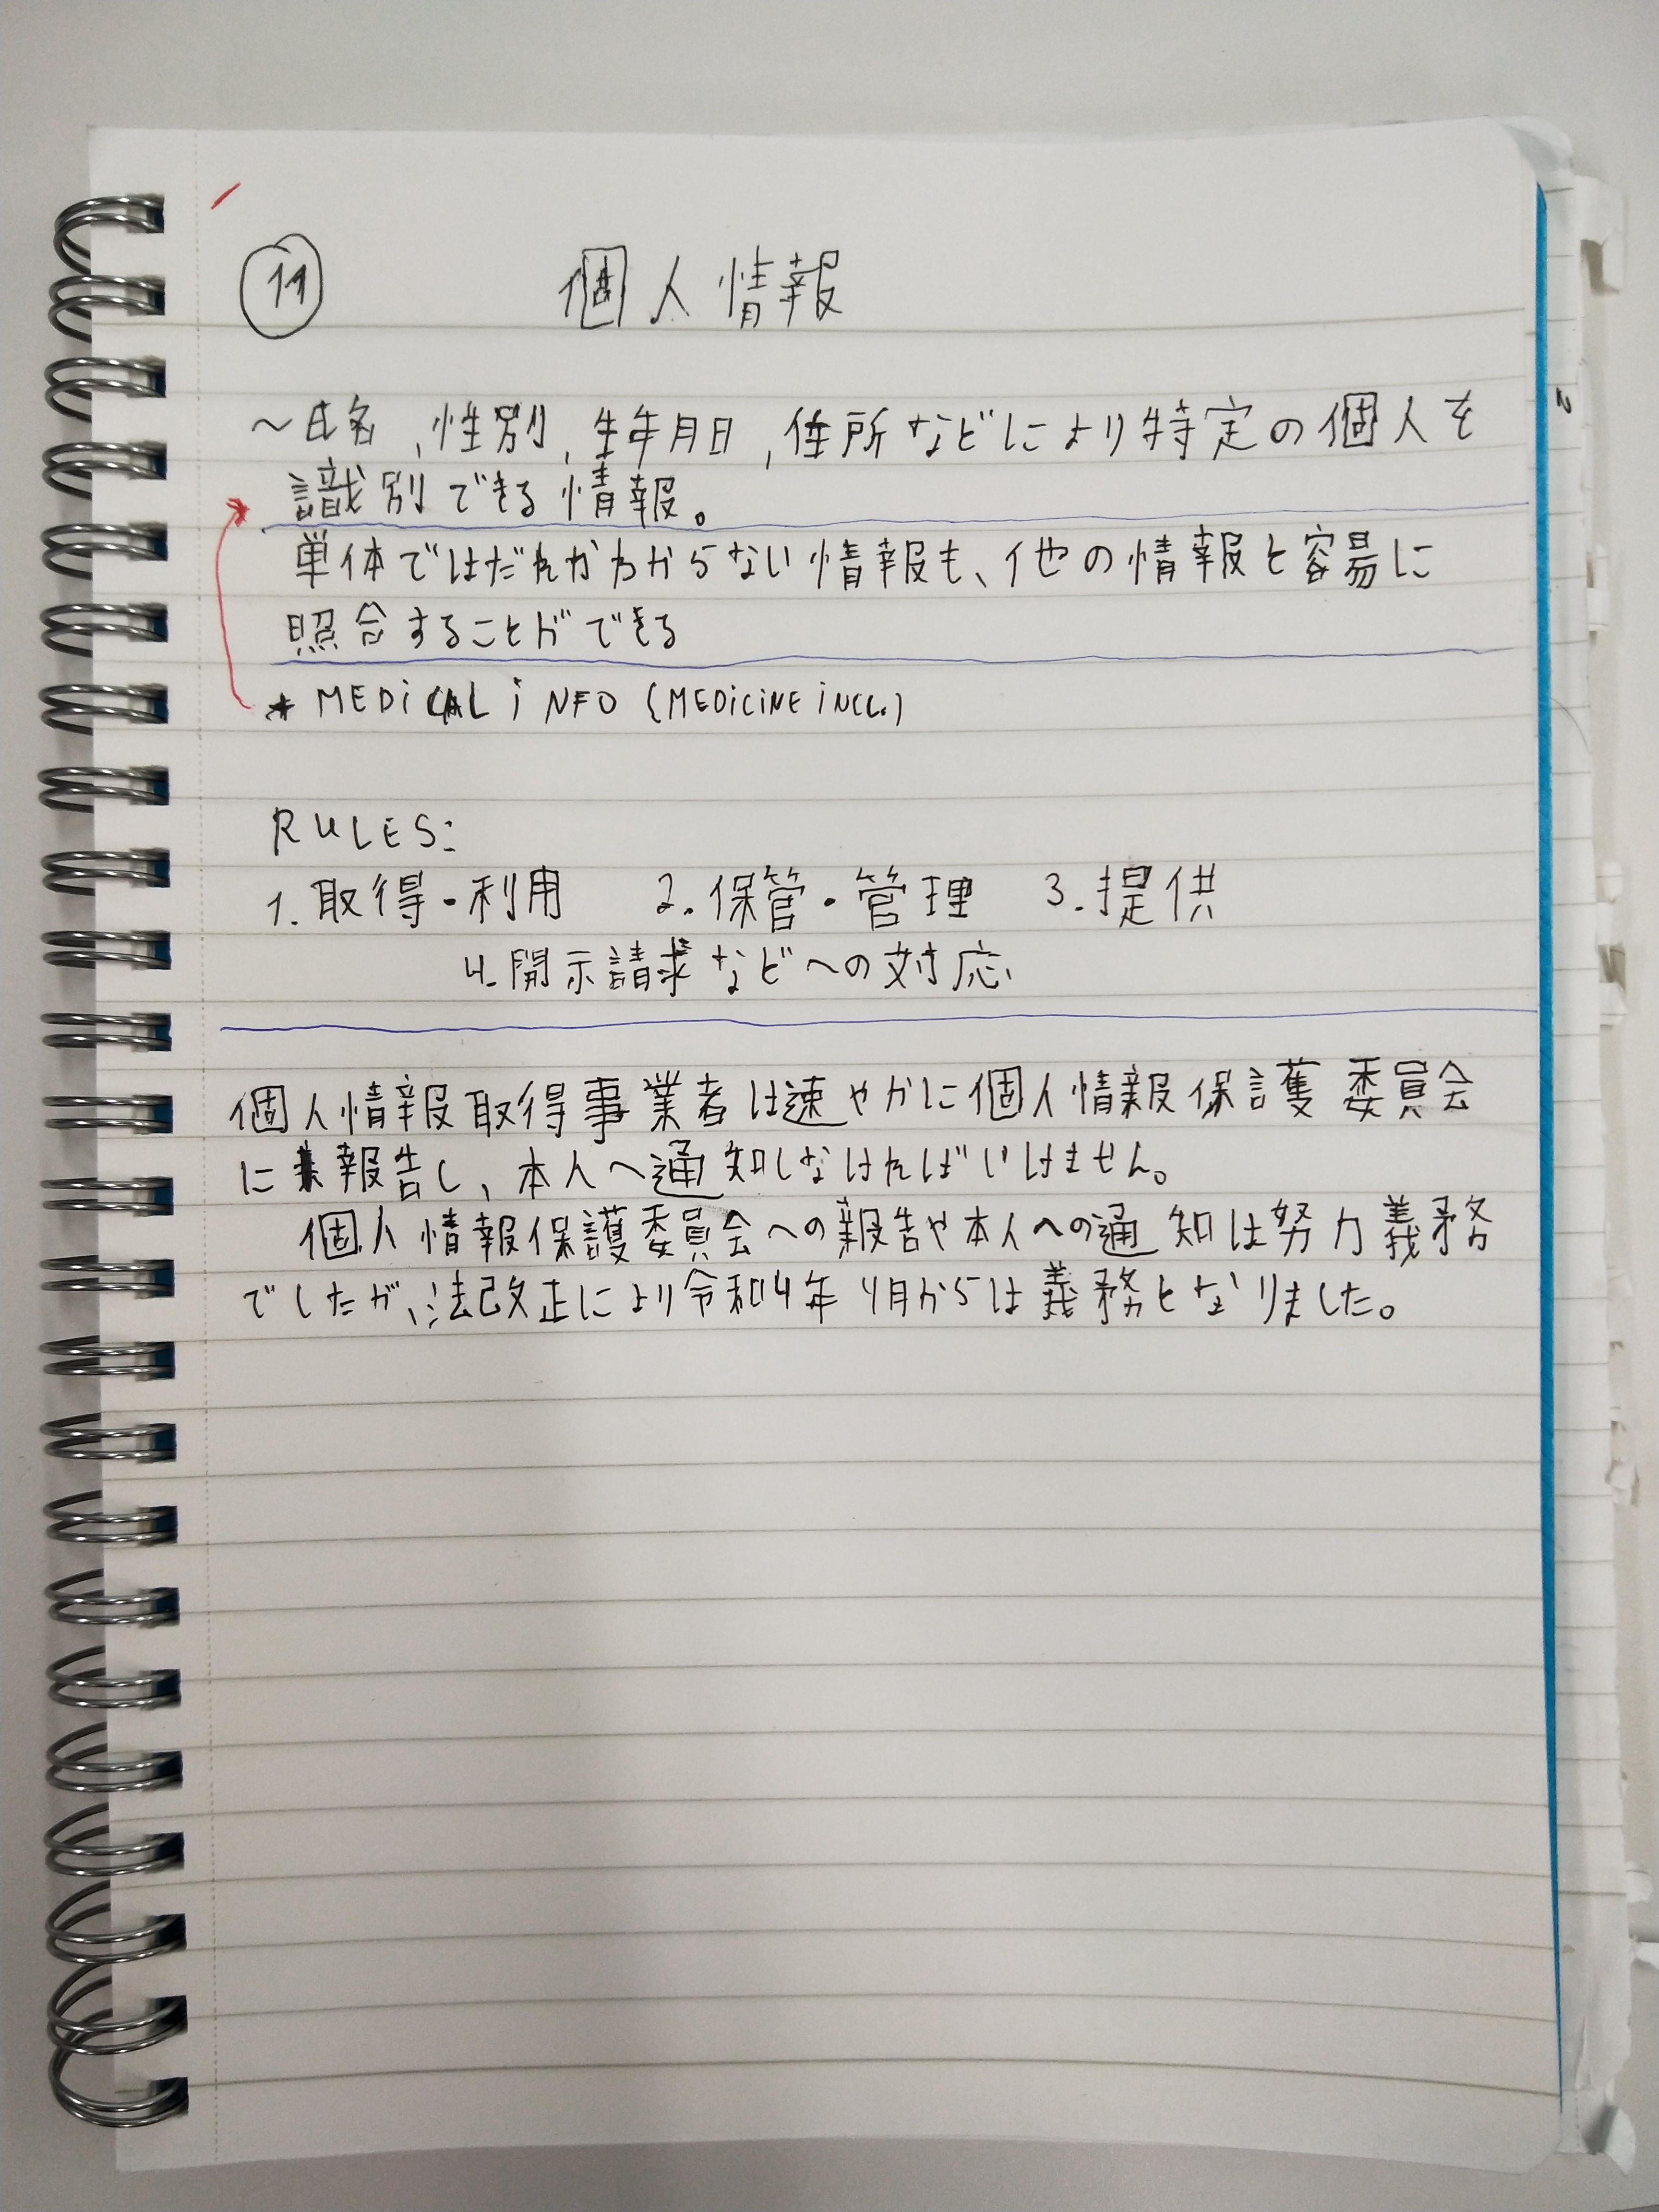 11 個人情報
～氏名,性別,生年月日,住所などにより特定の個人を
識別できる情報。
単体ではだれかわからない情報も、他の情報と容易に
照合することができる
* MEDICAL INFO (MEDICINE INCL.)
RULES:
1.取得・利用 2.保管・管理 3.提供
4.開示請求などへの対応
個人情報取得事業者は速やかに個人情報保護委員会
に報告し、本人へ通知しなければいけません。
個人情報保護委員会への報告や本人への通知は努力義務
でしたが、法改正により令和4年4月からは義務となりました。